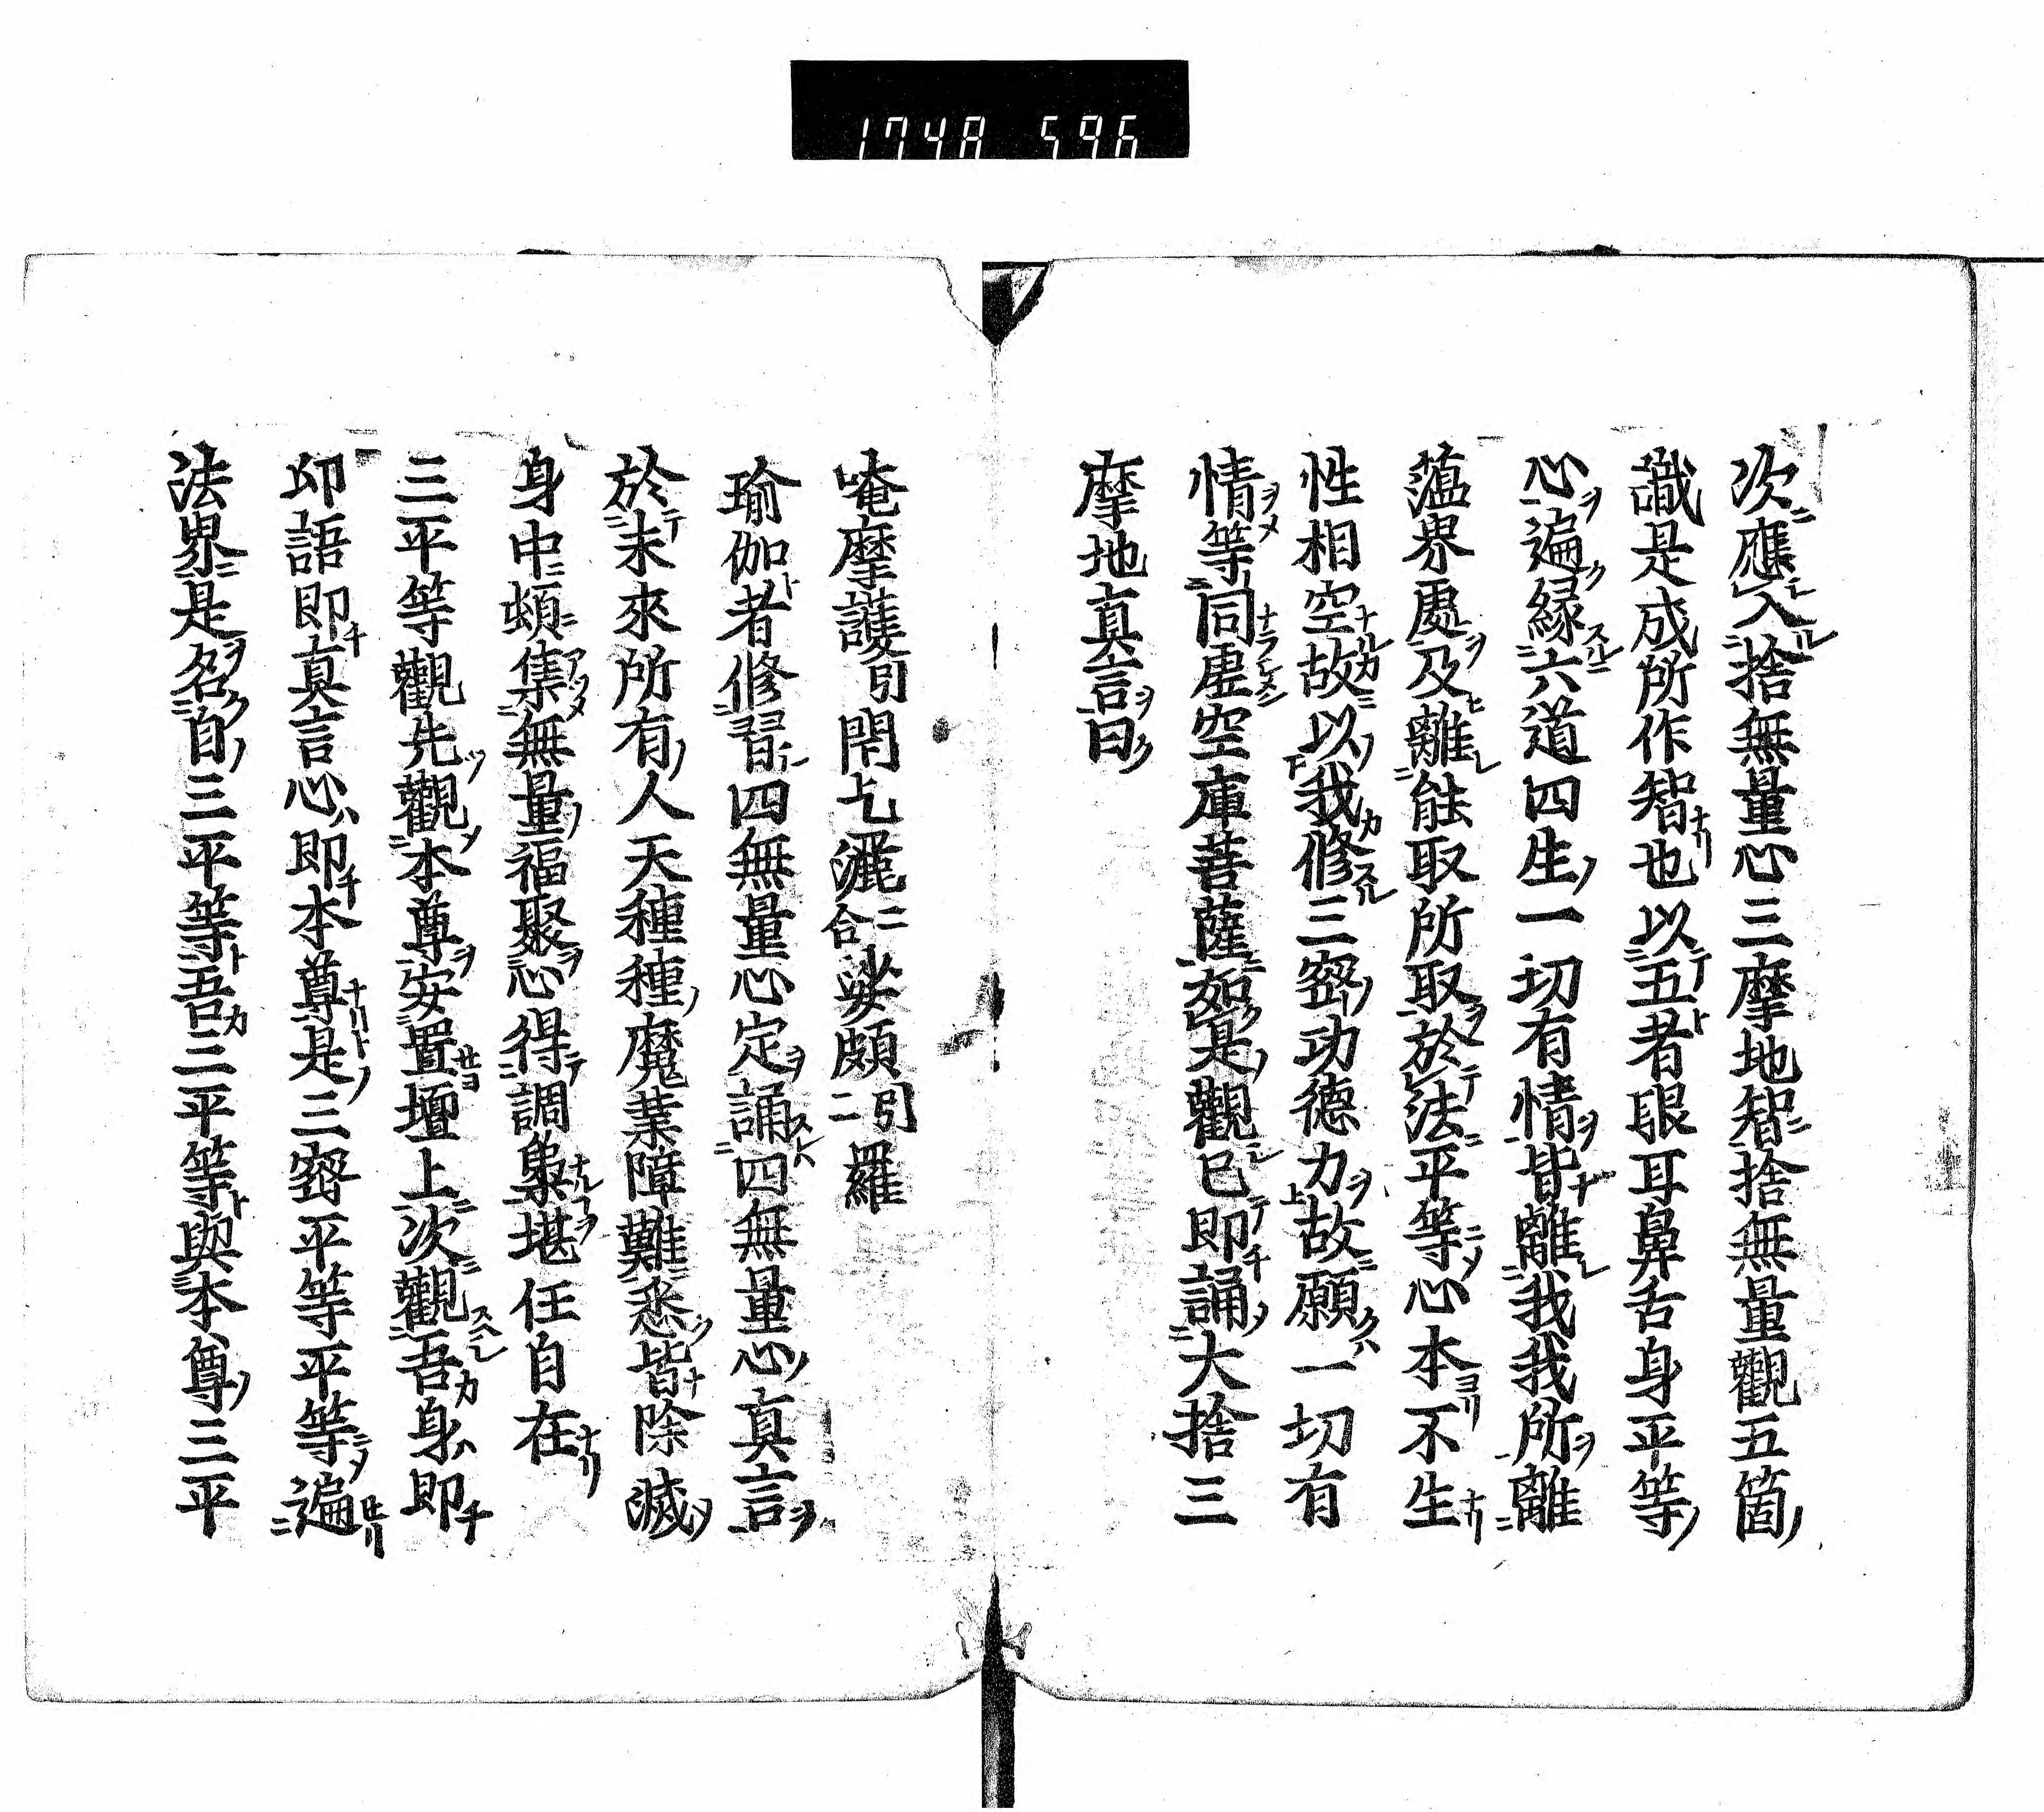 1748 596
次應入捨無量心三摩地智捨無量觀五箇
識是成所作智也以五者眼耳鼻舌身平等
心遍縁六道四生一切有情皆離我我所離
薀界處及離能取所取於法平等心本不生
性相空故以我修三密功德力故願一切有
情等同虚空庫菩薩如是觀已即誦大捨三
摩地真言曰
唵摩護引閇乞灑二合娑頗二引羅
瑜伽者修習四無量心定誦四無量心真言
於未來所有人天種種魔業障難悉皆除滅
身中頓集無量福聚心得調堪任自在
三平等觀先觀本尊安置壇上次觀吾身即
印語即真言心即本尊是三密平等平等遍
法界是名自三平等吾三平等與本尊三平